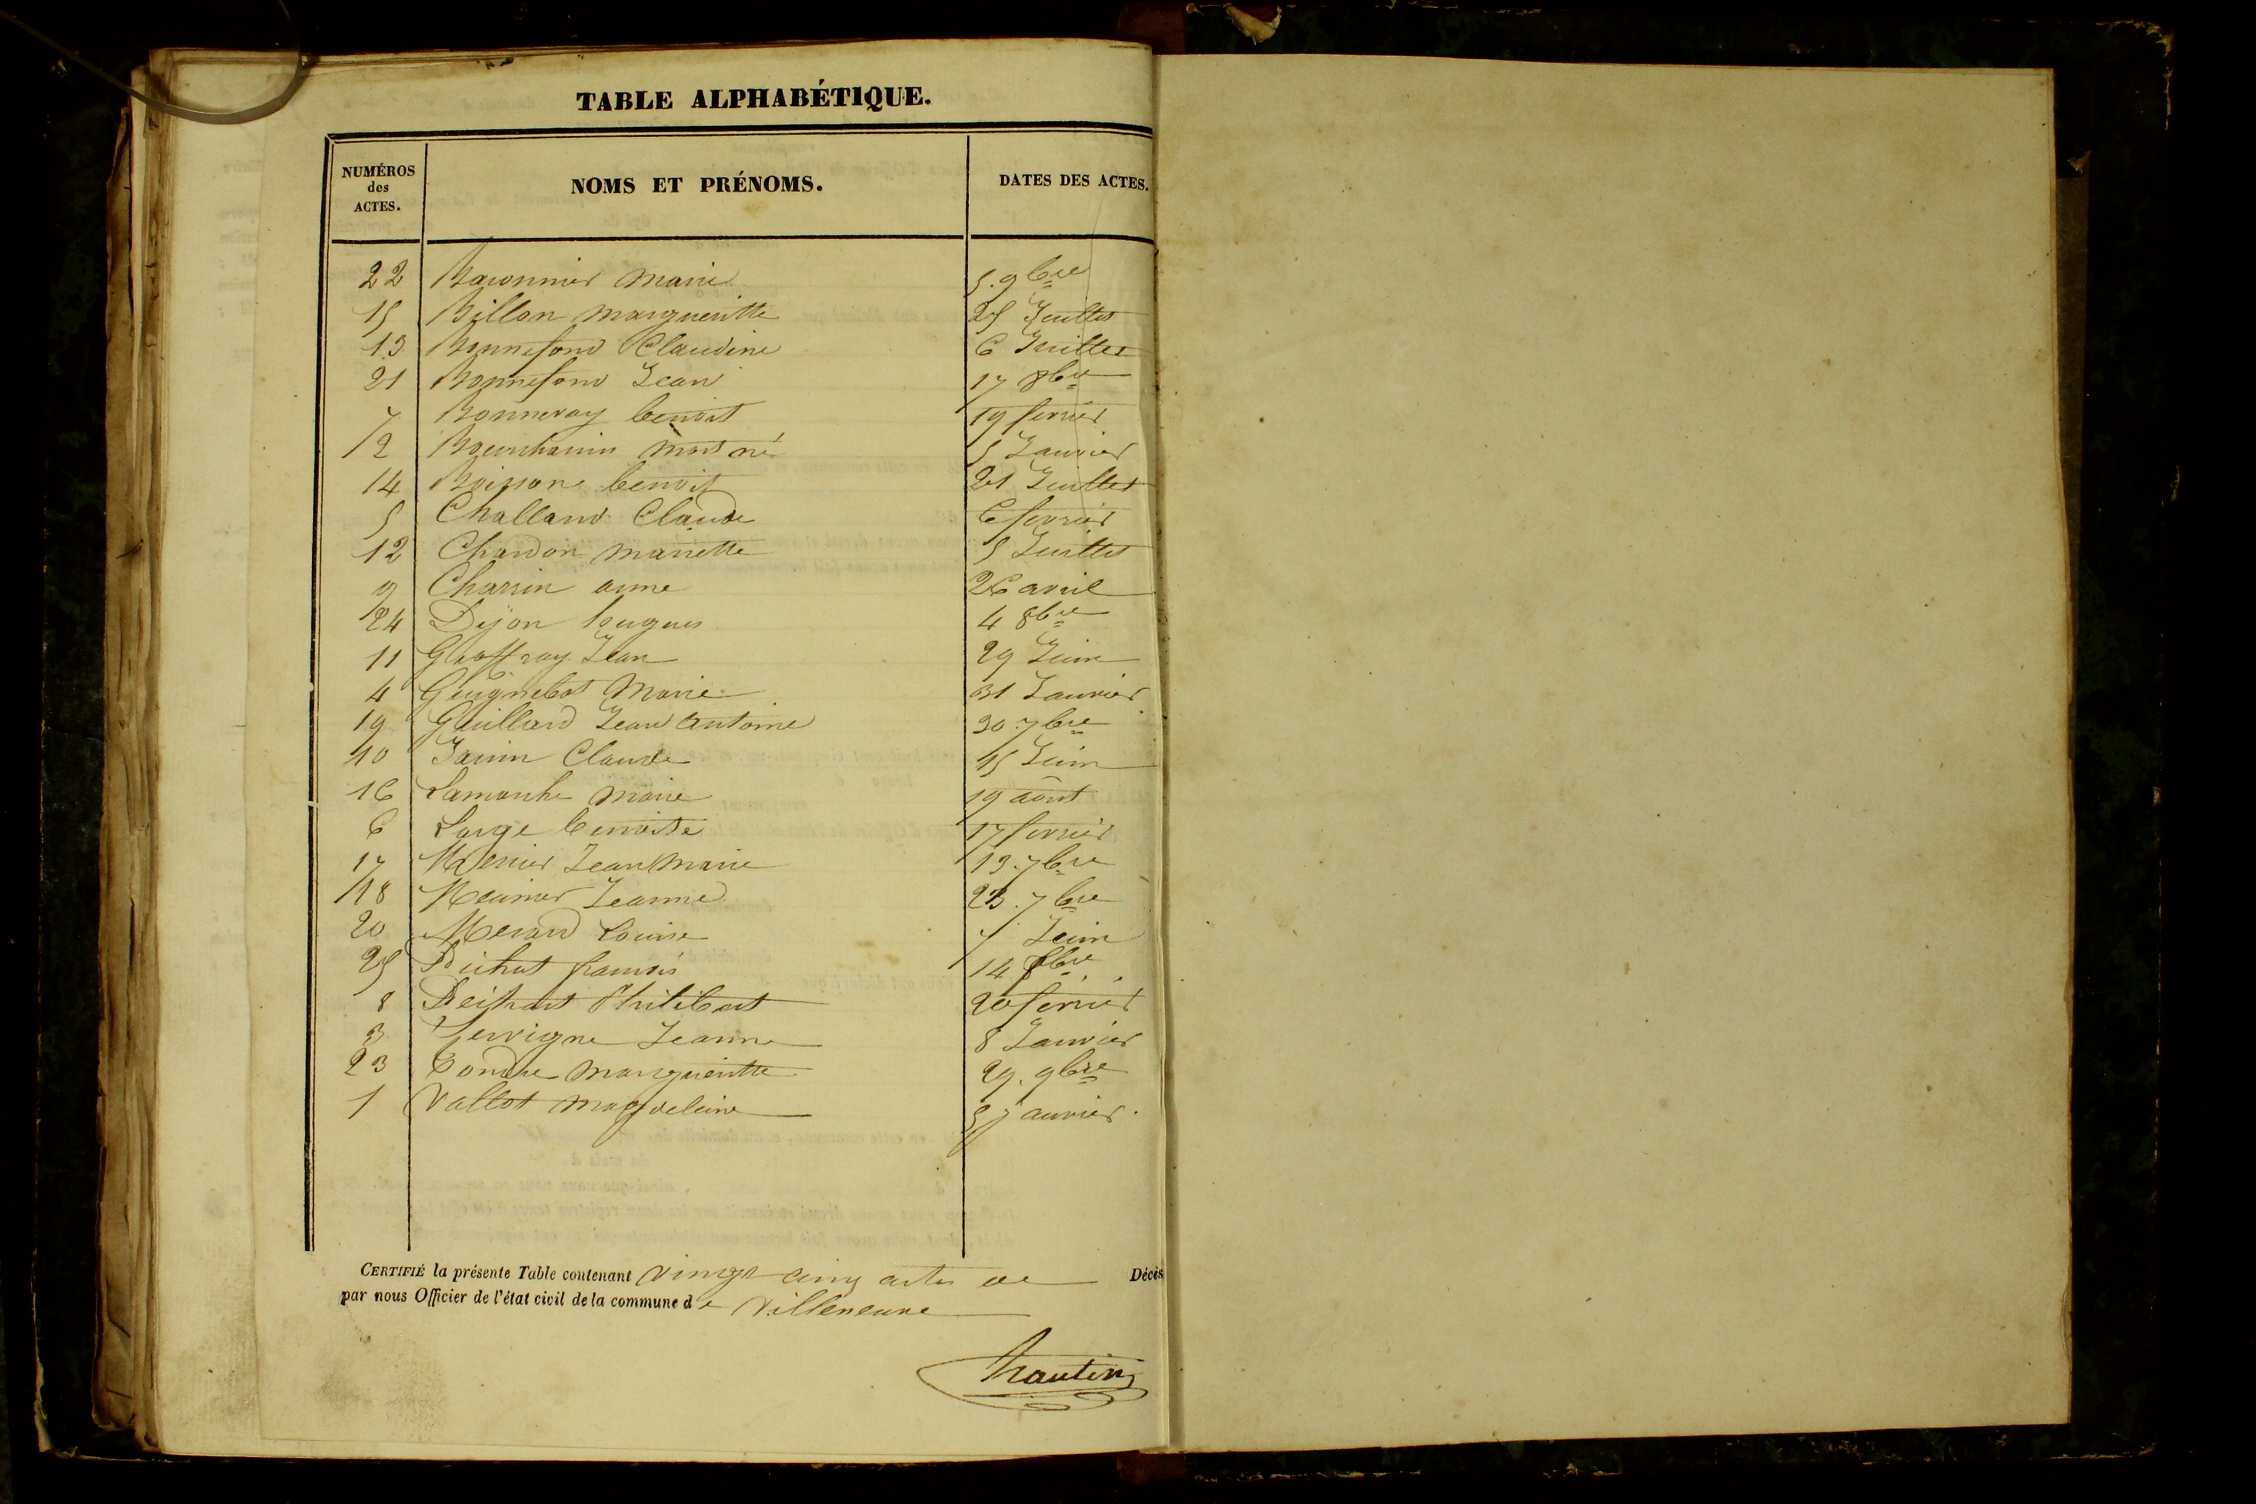 TABLE ALPHABÉTIQUE.
NUMÉROS des ACTES. NOMS ET PRÉNOMS. DATES DES ACTES.
22 Baronnier Marie 5. 9bre
15 Billon Margueritte 25 Juillet
13 Bonnefond Claudine 6 Juillet
21 Bonnefond Jean 17 8bre
7 Bonnevay benoit 19 fevrier
2 mort né 5 Janvier
14 Boisson benoit 21 Juillet
5 Challand Claude 6 fevrier
12 Chardon Mariette 5 Juillet
9 Charrin anne 26 avril
24 Dijon hugues 4 8bre
11 Geoffray Jean 29 Juin
4 Guignebot Marie 31 Janvier
19 Guillard Jean antoine 30 7bre
10 Janin Claude 15 Juin
16 Lamarche Marie 19 août
6 Large benoite 17 fevrier
17 Jean Marie 13. 7bre
18 Meunier Jeanne 23. 7bre
20 Louise 7 Juin
25 françois 14
8 Philibert 20 fevrier
3 Jeanne 8 Janvier
23 Margueritte 29. 9bre
1 Vallot Magdeleine 3 janvier.
CERTIFIÉ la présente Table contenant vingt cinq actes de Décès
par nous Officier de l'état civil de la commune de Villeneuve